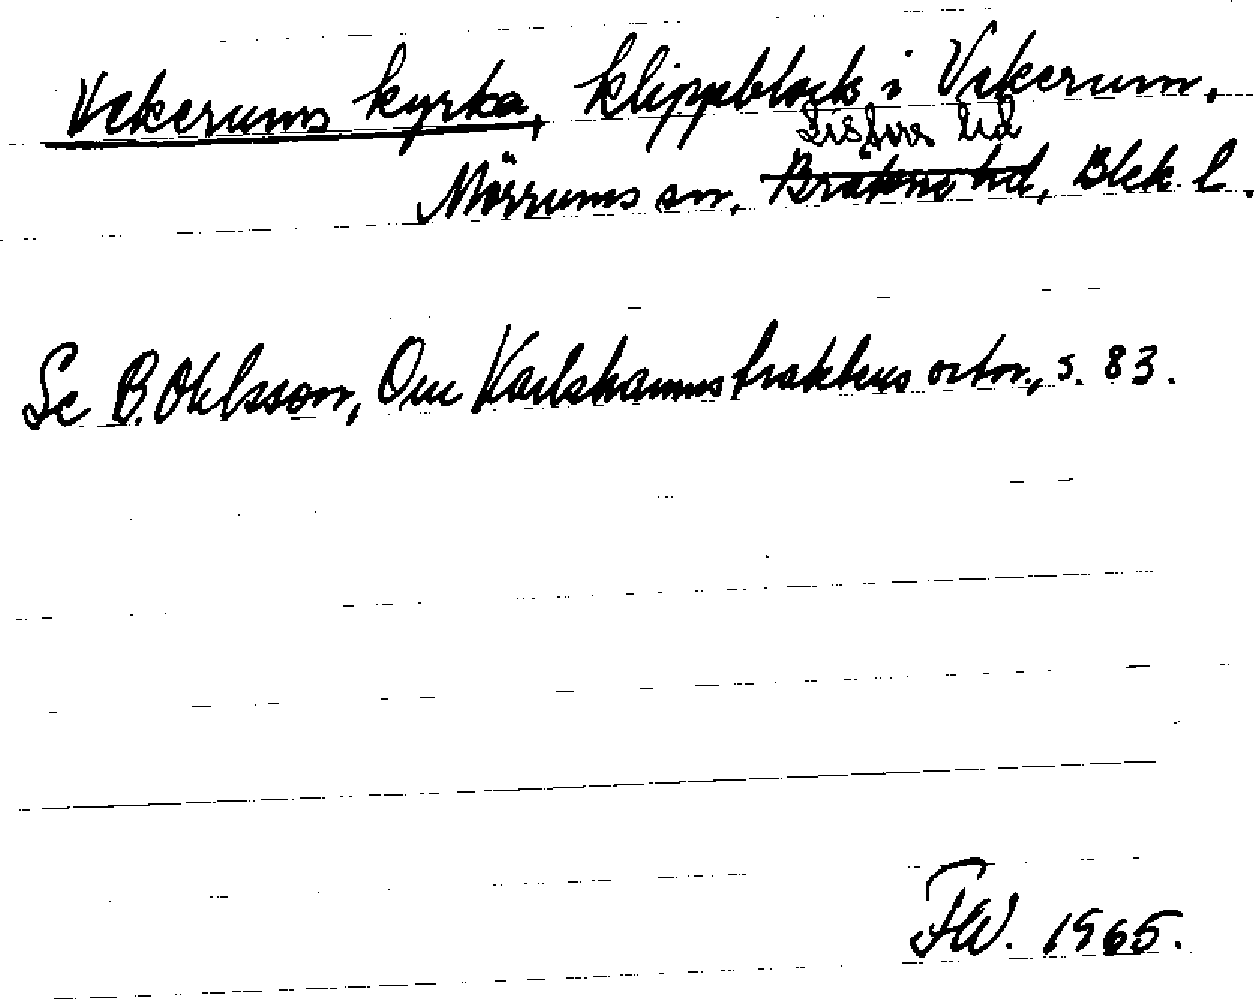 Vekerums kyrka, klippblock i Vekerum,
Listers hd
Mörrums sn, Bräkne hd, Blek l.
Se B. Ohlsson, Om Karlshamnstraktens ortn., s. 83.
FW. 1965.